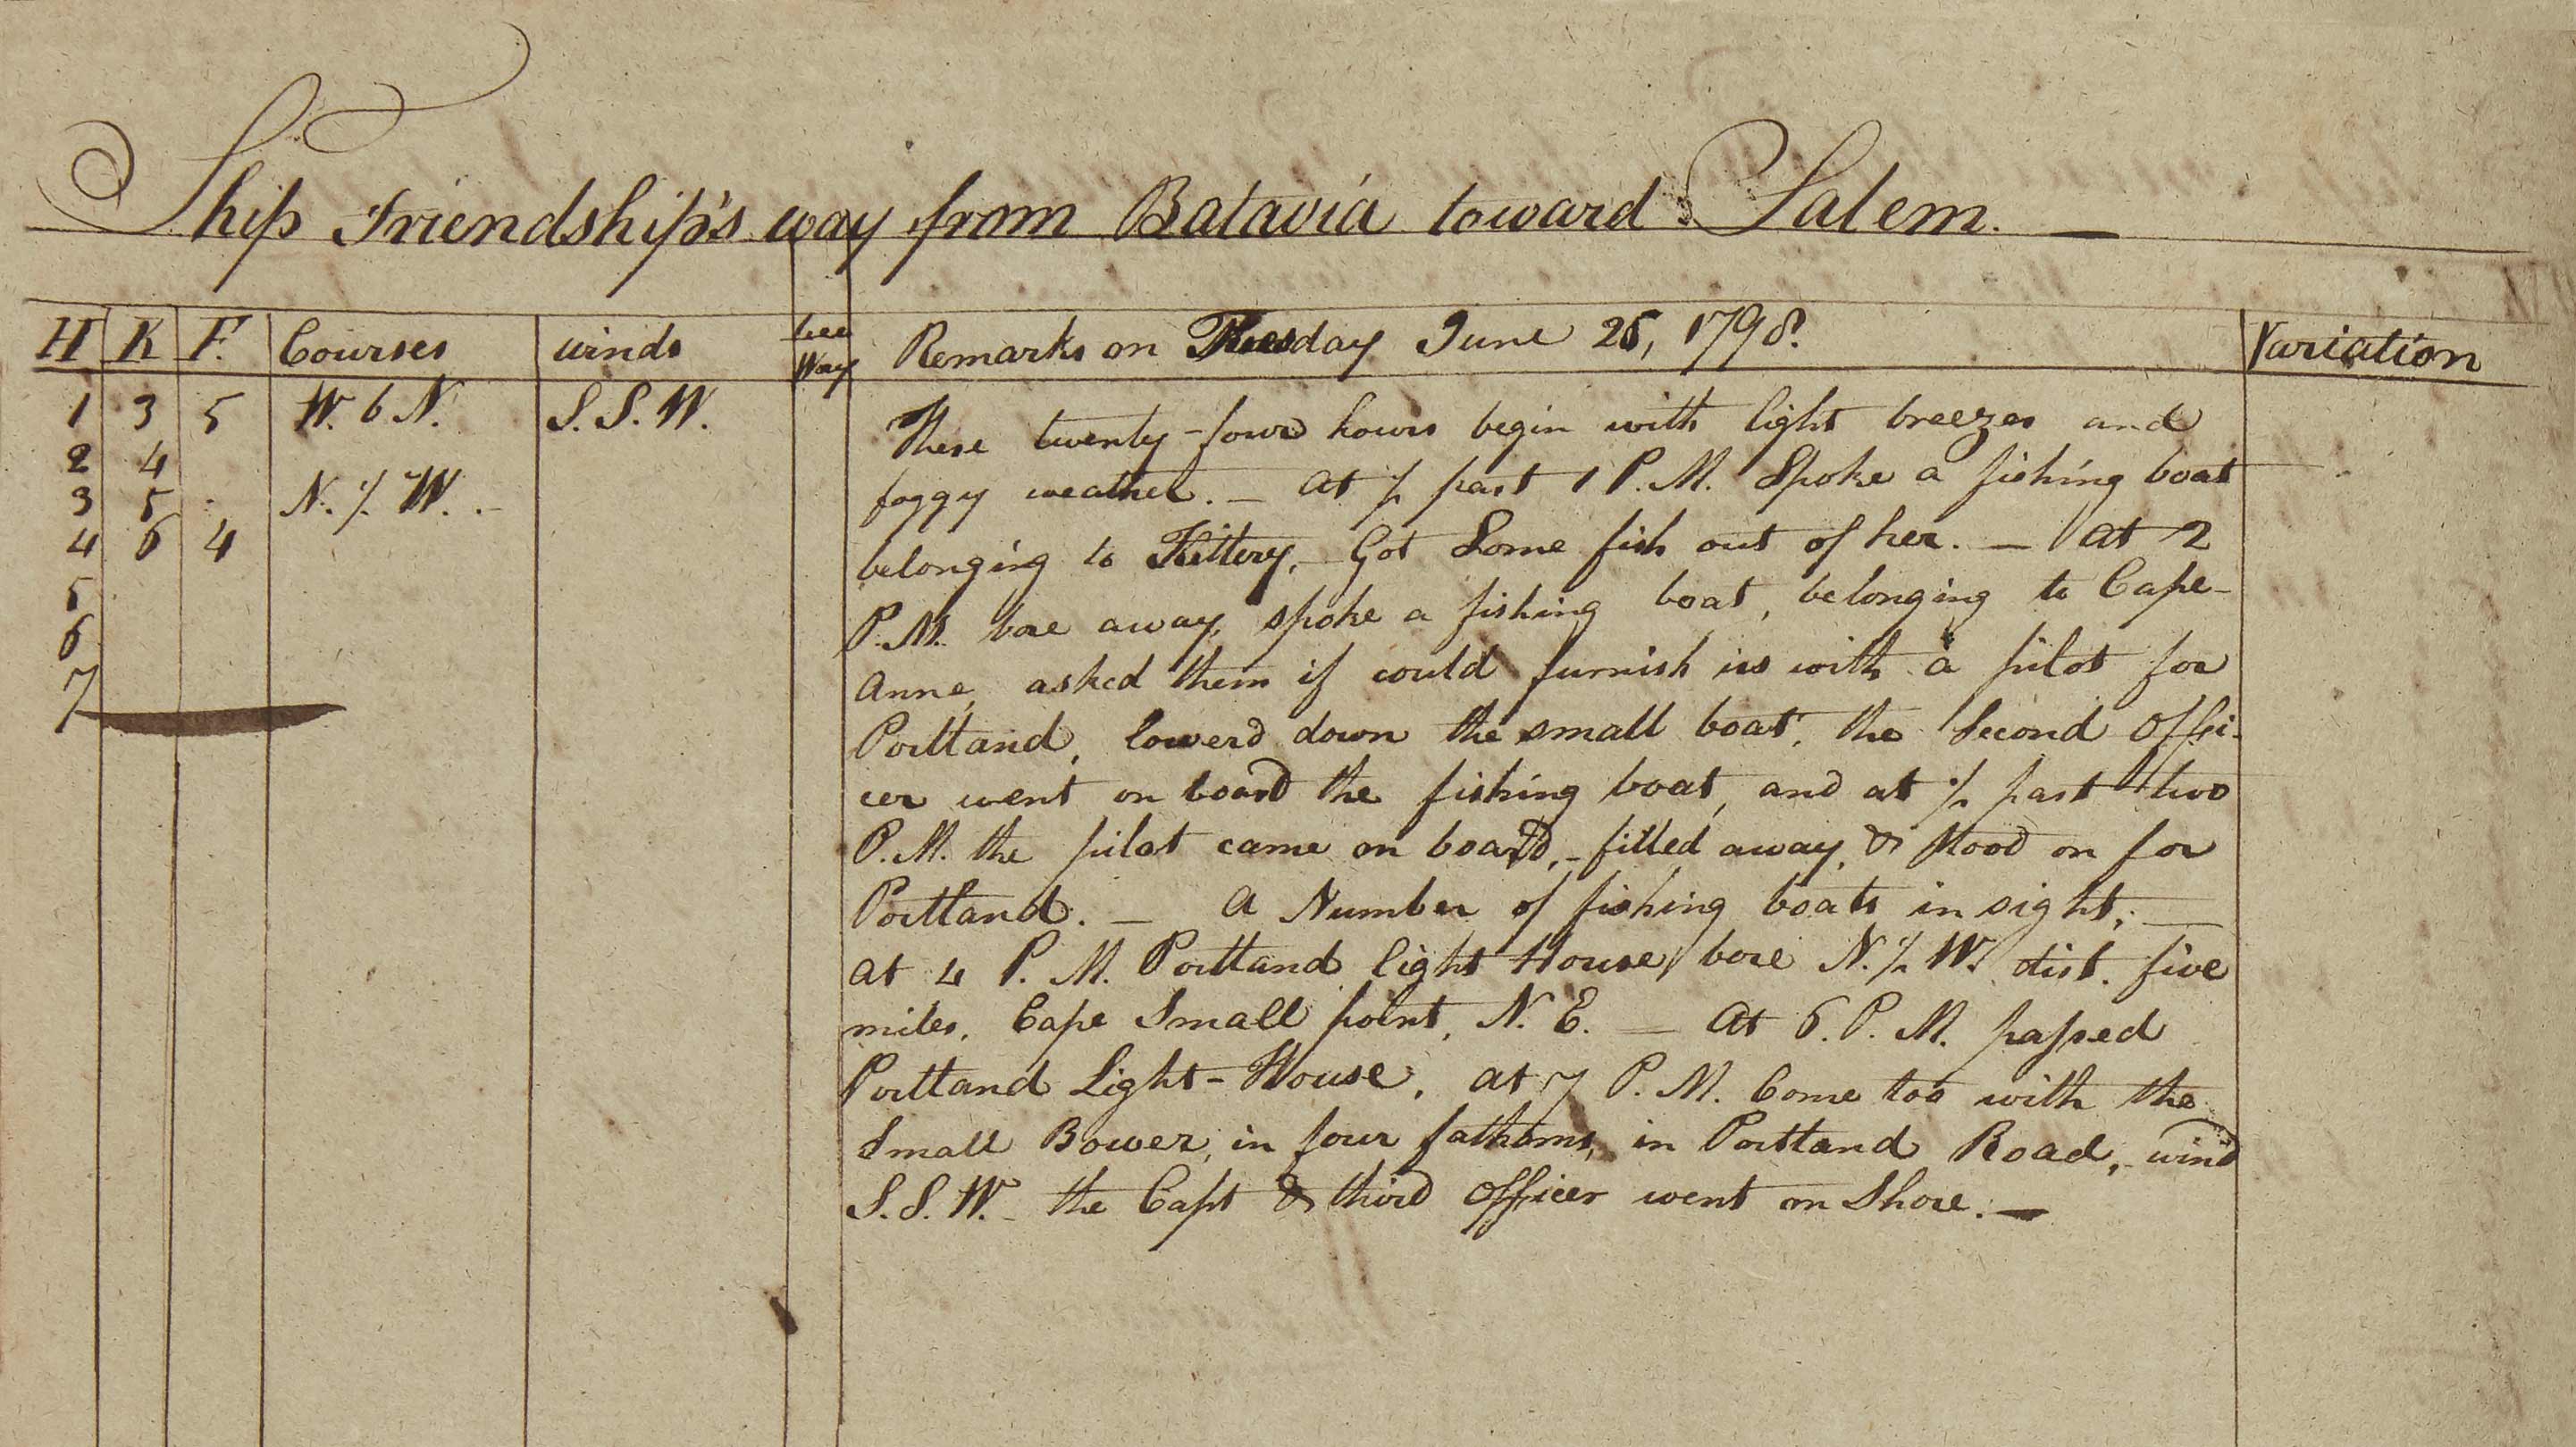 Ship Friendship's way from Batavia toward Salem. —
H K F. Courses winds Lee Way Remarks on Tuesday June 26, 1798. Variation
1 3 5 W. b N. S. S. W.
2 4
3 5 N. ½ W. . -
4 6 4
5
6
7
These twenty-four hours begin with light breezes and
foggy weather. — At ½ past 1 P. M. Spoke a fishing boat
belonging to Kittery, — Got Some fish out of her. — At 2
P. M. bore away, spoke a fishing boat, belonging to Cape-
Anne, asked them if could furnish us with a pilot for
Portland, lowerd down the small boat, the Second Offi-
cer went on board the fishing boat, and at ½ past two
P. M. the pilot came on board, - filled away, & stood on for
Portland. — A Number of fishing boats in sight, —
at 4 P. M. Portland light House bore N. ½ W. dist. five
miles, Cape Small point, N. E. — At 6. P. M. passed
Portland Light-House, at 7 P. M. Come too with the
Small Bower, in four fathoms, in Portland Road, - wind
S. S. W. - the Capt & third Officer went on Shore. —